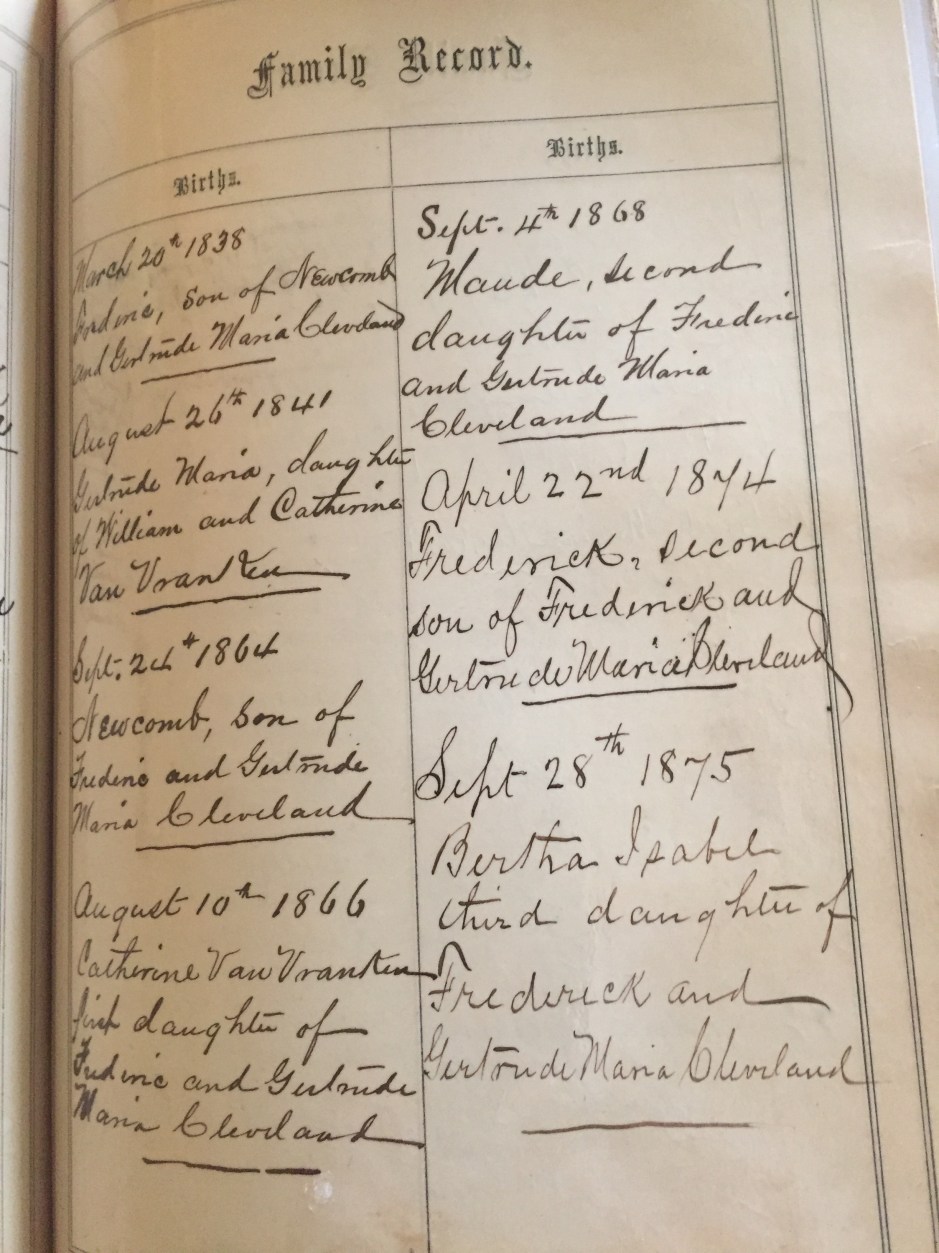 Family Record.
Births.
March 20th 1838
Frederic, son of Newcomb
and Gertrude Maria Cleveland
August 26th 1841
Gertrude Maria, daughter
of William and Catherine
Van Vranken
Sept. 24th 1864
Newcomb, son of
Frederic and Gertrude
Maria Cleveland
August 10th 1866
Catherine Van Vranken
first daughter of
Frederic and Gertrude
Maria Cleveland
Births.
Sept. 4th 1868
Maude, second
daughter of Frederic
and Gertrude Maria
Cleveland
April 22nd 1874
Frederick, second
son of Frederick and
Gertrude Maria Cleveland
Sept 28th 1875
Bertha Isabel
third daughter of
Frederick and
Gertrude Maria Cleveland